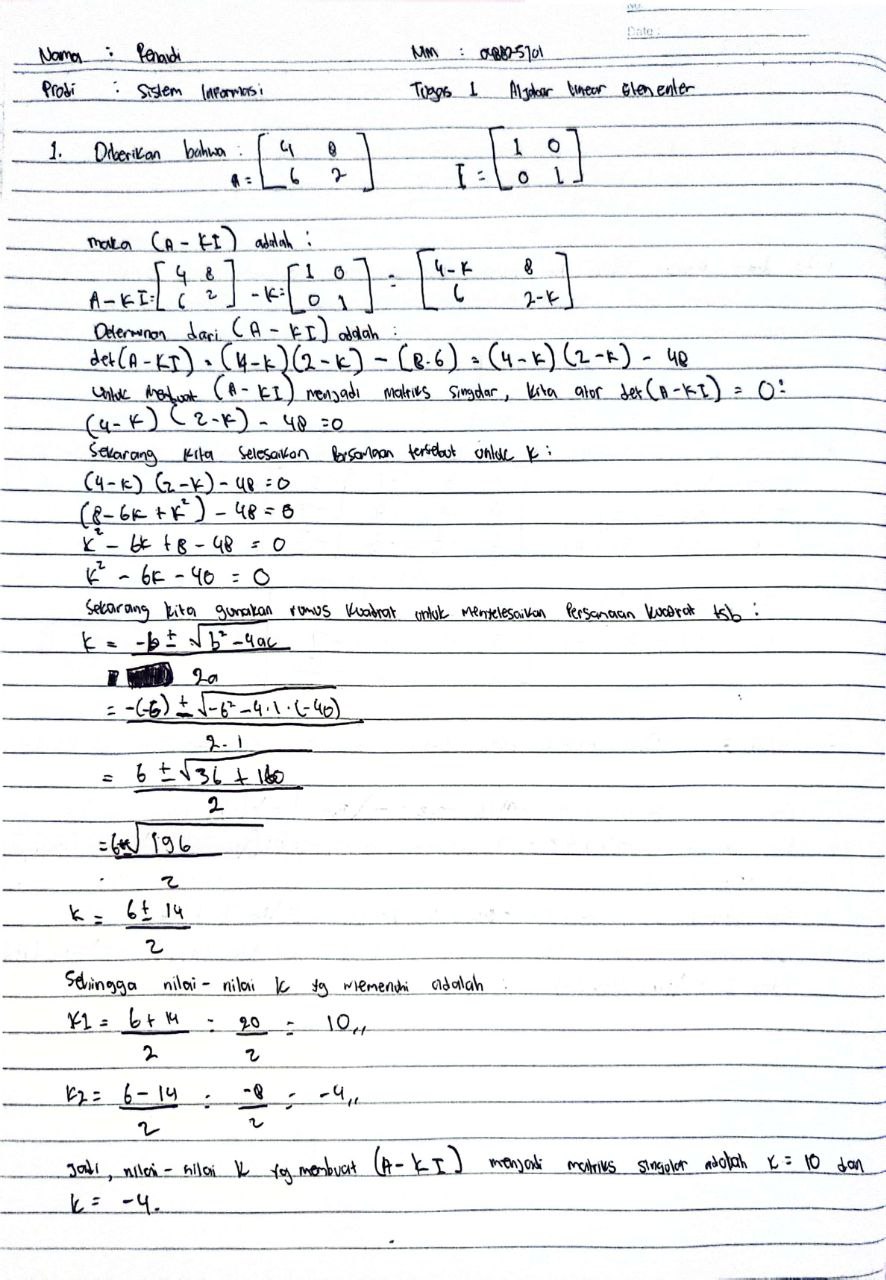 No.
Date:
Nama : Penaidi Nim :
Prodi : Sistem Informasi Tugas 1 Aljabar linear Elementer
1. Diberikan bahwa : A = [4 8; 6 2] I = [1 0; 0 1]
maka (A - KI) adalah :
A - KI = [4 8; 6 2] - K = [1 0; 0 1] = [4-K 8; 6 2-K]
Determinan dari (A - KI) adalah :
det(A - KI) = (4-K)(2-K) - (8.6) = (4-K)(2-K) - 48
untuk membuat (A - KI) menjadi matriks singular, kita ator det(A-KI) = 0:
(4-K) (2-K) - 48 = 0
Sekarang kita selesaikan persamaan tersebut untuk K :
(4-K) (2-K) - 48 = 0
(8-6K + K²) - 48 = 0
K² - 6K + 8 - 48 = 0
K² - 6K - 40 = 0
Sekarang kita gunakan rumus kuadrat untuk menyelesaikan Persamaan kuadrat tsb :
K = -b ± √b² - 4ac
2a
= -(-6) ± √-6² - 4.1.(-40)
2.1
= 6 ± √36 + 160
2
= 6 ± √196
2
K = 6 ± 14
2
Sehingga nilai - nilai K yg memenuhi adalah
K1 = 6 + 14 = 20 = 10,,
2 2
K2 = 6 - 14 = -8 = -4,,
2 2
Jadi, nilai - nilai K yg membuat (A - KI) menjadi matriks singular adalah K = 10 dan
K = -4.